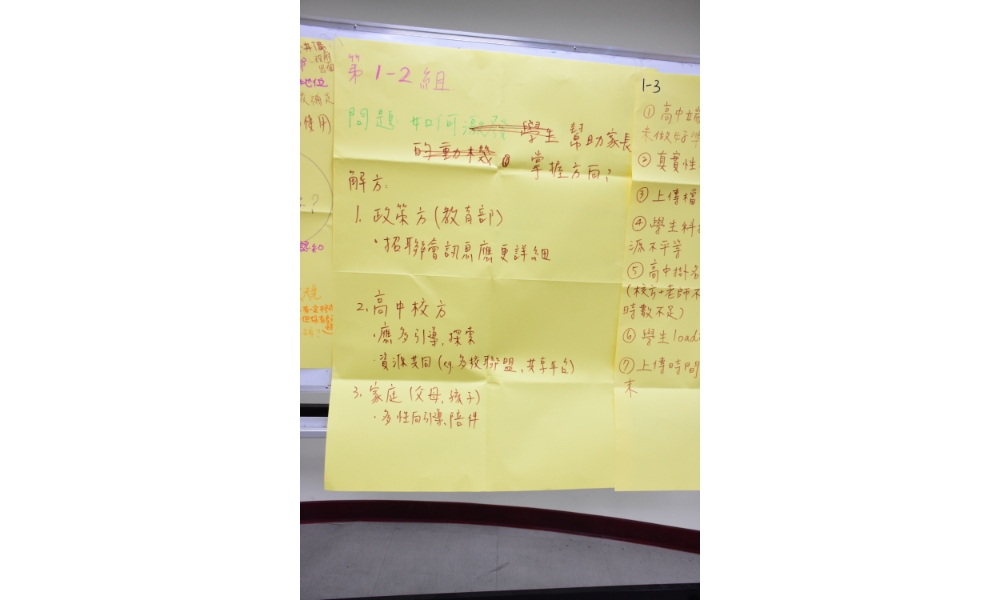 第1-2組
問題:如何激發學生 幫助家長
的動機 掌握方向?
解方:
1. 政策方(教育部)
·招聯會訊息應更詳細
2. 高中校方
·應多引導、探索
·資源共同(eg.多校聯盟、共享平台)
3. 家庭(父母、孩子)
·多性向引導、陪伴
1-3
① 高中端
未做好
② 真實性
③ 上傳檔
④ 學生科
派不平等
⑤ 高中
(校方+老師不
時數不足)
⑥ 學生load
⑦ 上傳時間
末
地位
使用)